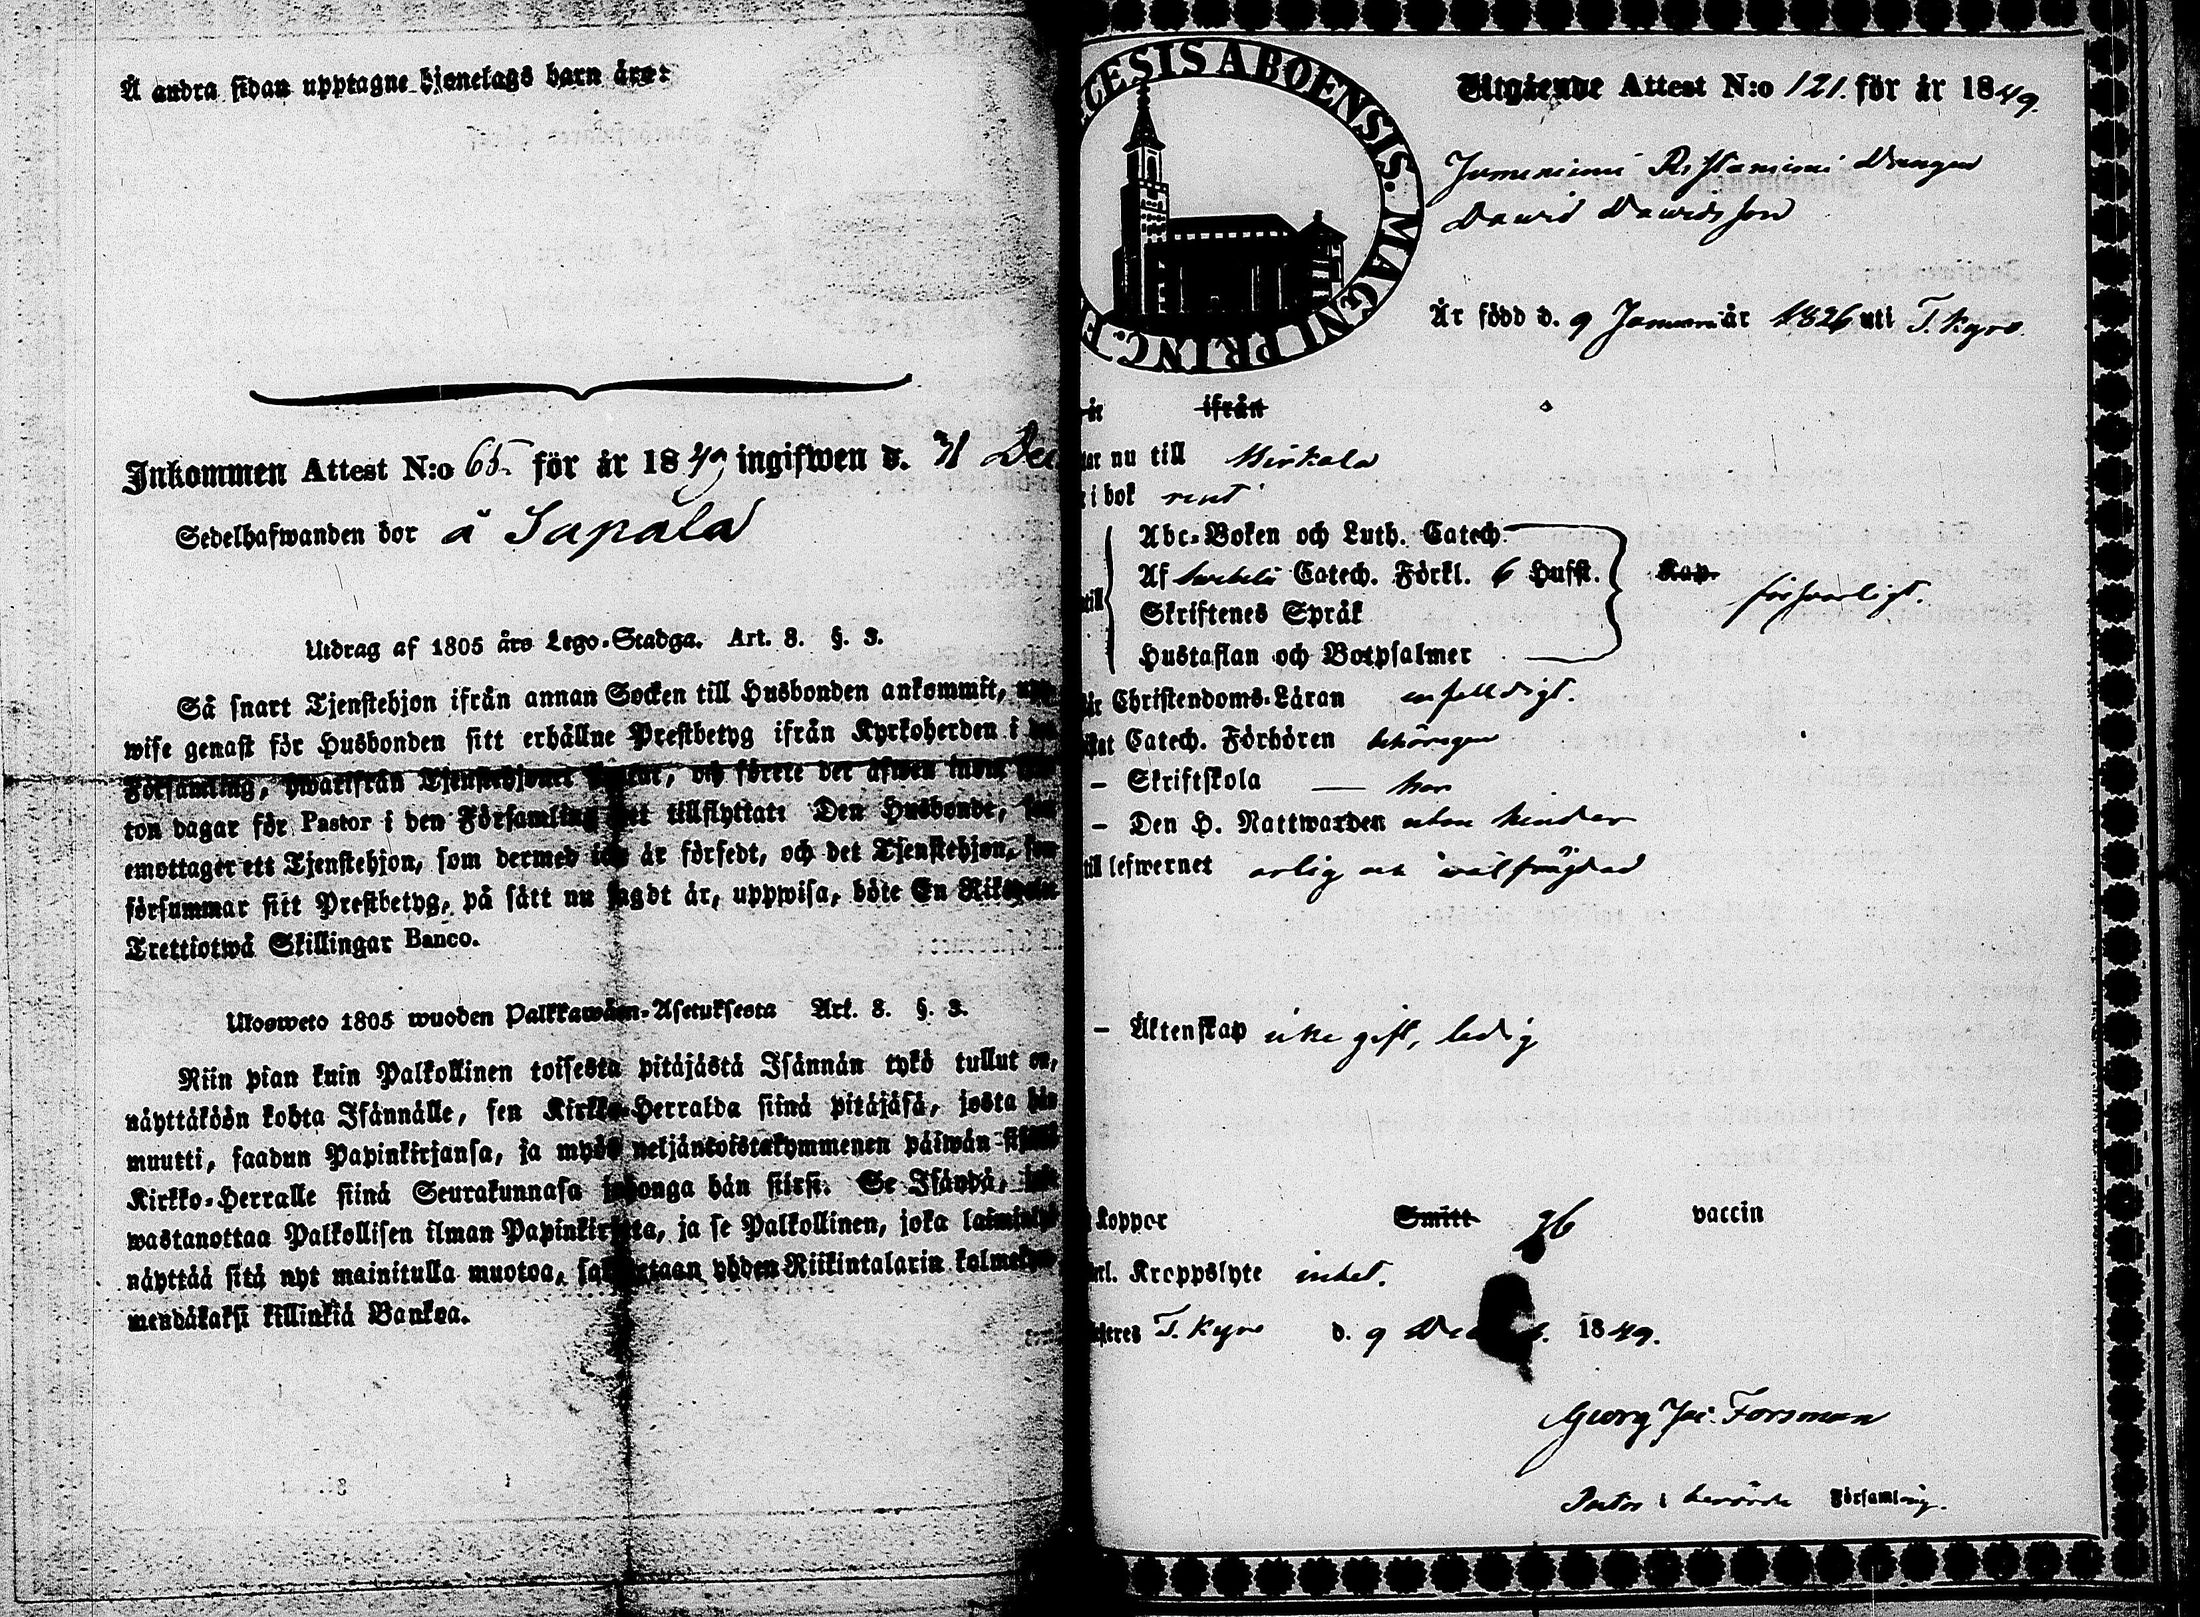 Å andra sidan upptagne hjonelags barn äro:
Inkommen Attest N:o 65 för år 1849 ingifwen d. 31 Dec
Sedelhafwanden bor å Sapala
Utdrag af 1805 års Lego-Stadga. Art. 8. §. 3.
Så snart Tjenstehjon ifrån annan Socken till Husbonden ankommit, upp-
wise genast för Husbonden sitt erhållne Prestbetyg ifrån Kyrkoherden i
Församling, hwarifrån Tjenstehjonet, och förete det äfwen inom
ton dagar för Pastor i den Församling det tillflyttat: Den Husbonde, som
emottager ett Tjenstehjon, som dermed icke är försedt, och det Tjenstehjon, som
försummar sitt Prestbetyg, på sätt nu sagdt är, uppwisa, böte En Riksdaler
Trettiotwå Skillingar Banco.
Ulosweto 1805 wuoden Palkkawäen-Asetuksesta Art. 8. §. 3.
Niin pian kuin Palkollinen toisesta pitäjästä Isännän tykö tullut on,
näyttäköön kohta Isännälle, sen Kirkko-Herralda siinä pitäjäsä, josta hän
muutti, saadun Papinkirjansa, ja myös neljäntoistakymmenen päiwän sisällä
Kirkko-Herralle siinä Seurakunnasa johonga hän siirsi. Se Isändä, joka
wastanottaa Palkollisen ilman Papinkirjata, ja se Palkollinen, joka laiminlyö
näyttää sitä nyt mainitulla muotoa, sakotetaan yhden Riikintalarin kolmekym-
mendäkaksi killinkiä Bankoa.
CESIS ABOENSIS. MAGNI PRINC. F
Utgående Attest N:o 121. för år 1849.
Jumeniemi Ristaniemi Drengen
David Davidsson
Är född d. 9 Januari år 1826 uti T. Kyro.
år ifrån
nu till Birkala
i bok rent
Abc-Boken och Luth. Catech.
Af Svebeli Catech. Förkl. 6 Hufst. Kap. försvarligt.
till Skriftenes Språk
Hustaflan och Botpsalmer
Christendoms-Läran enfelldigt.
Catech. Förhören behörigen
– Skriftskola — har
– Den H. Nattwarden utan hinder
till lefwernet ärlig och wälfrägdad
– Äktenskap icke gift, ledig
Koppor Smitt 26 vaccin
Kroppslyte intet.
T. Kyro d. 9 Dec 1849.
Georg Jac. Forsman
Pastor i berörde Församling.